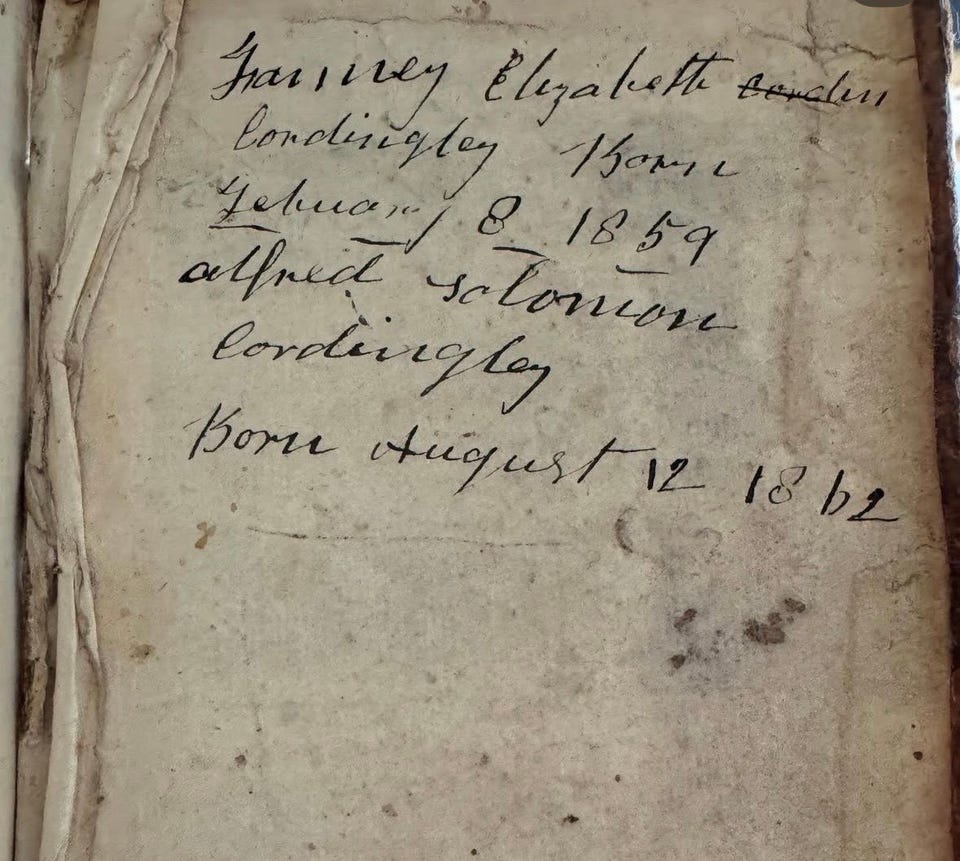 Fanney Elizabeth Cordin
Cordingley Born
Febuary 8 1859
alfred solomon
Cordingley
Born August 12 1862